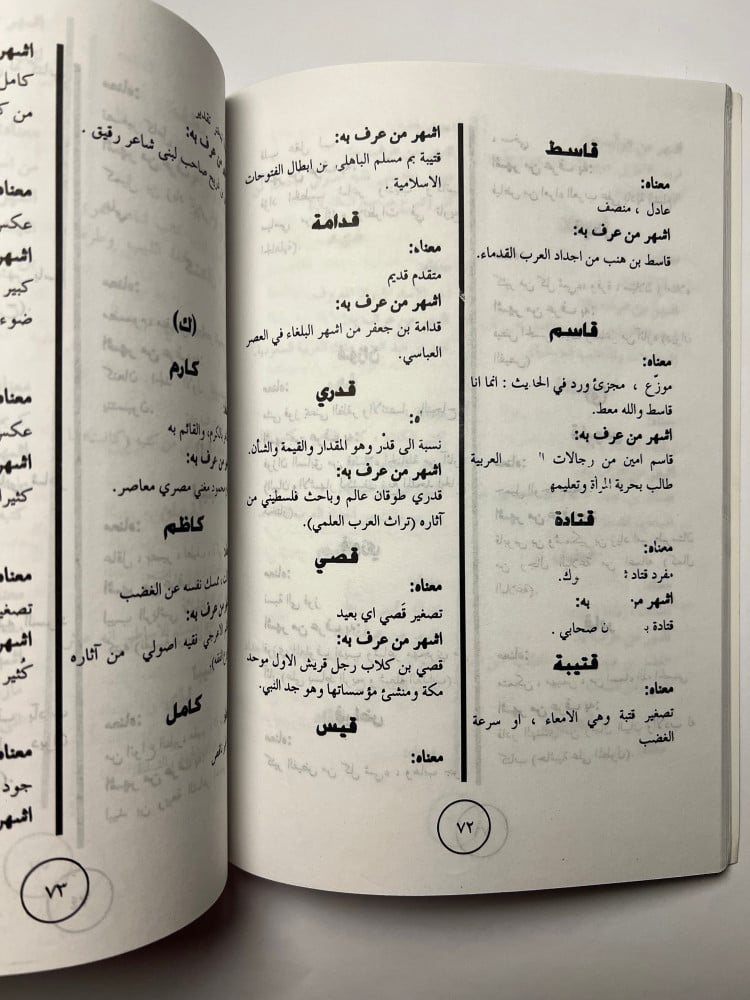 قاسط
معناه:
عادل ، منصف
اشهر من عرف به:
قاسط بن هنب من اجداد العرب القدماء.
قاسم
معناه:
موزّع ، مجزئ ورد في الحديث : انما انا
قاسط والله معط.
اشهر من عرف به:
قاسم امين من رجالات العربية
طالب بحرية المرأة وتعليمها
قتادة
معناه:
مفرد قتاد
اشهر به:
قتادة صحابي .
قتيبة
معناه:
تصغير قتبة وهي الامعاء ، او سرعة
الغضب
اشهر من عرف به:
قتيبة بم مسلم الباهلي من ابطال الفتوحات
الاسلامية .
قدامة
معناه:
متقدم قديم
اشهر من عرف به:
قدامة بن جعفر من اشهر البلغاء في العصر
العباسي.
قدري
نسبة الى قدْر وهو المقدار والقيمة والشأن.
اشهر من عرف به:
قدري طوقان عالم وباحث فلسطيني من
آثاره (تراث العرب العلمي).
قصي
معناه:
تصغير قَصي اي بعيد
اشهر من عرف به:
قصي بن كلاب رجل قريش الاول موحد
مكة ومنشئ مؤسساتها وهو جد النبي.
قيس
معناه:
٧٢
من عرف به:
صاحب لبنى شاعر رقيق .
(ك)
كارم
بالكرم، والقائم به
من عرف به:
محمود مغني مصري معاصر.
كاظم
يمسك نفسه عن الغضب
من عرف به:
الاعرجي فقيه اصولي من آثاره
كامل
اشهر
كامل
من
معناه
عكس
اشهر
كبير
ضوء
معناه
عكس
اشهر
كثير
معناه
تصغير
اشهر
كُثير
معناه
جود
اشهر
٧٣